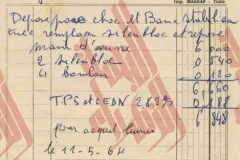 Imp. MAARAF - Tunis
Depose pose choc et Barre Stabilisa
trice remplacer silenbloc et repose
main d'œuvre 6 000
2 silenbloc 0 540
4 boulon 0 120
6 660
T.P.S et CEDN 2.82% 0 188
6 848
Pour acquit
le 11-5-64